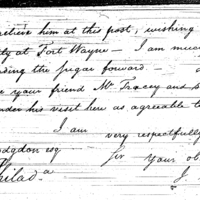 receive him at this post, wishing
ty at Fort Wayne — I am much
ding the sugar forward —
your friend Mr Tracey and
nder his visit here as agreeable t
I am very respectfully
odgdon esq Sir Your ob
Philada J